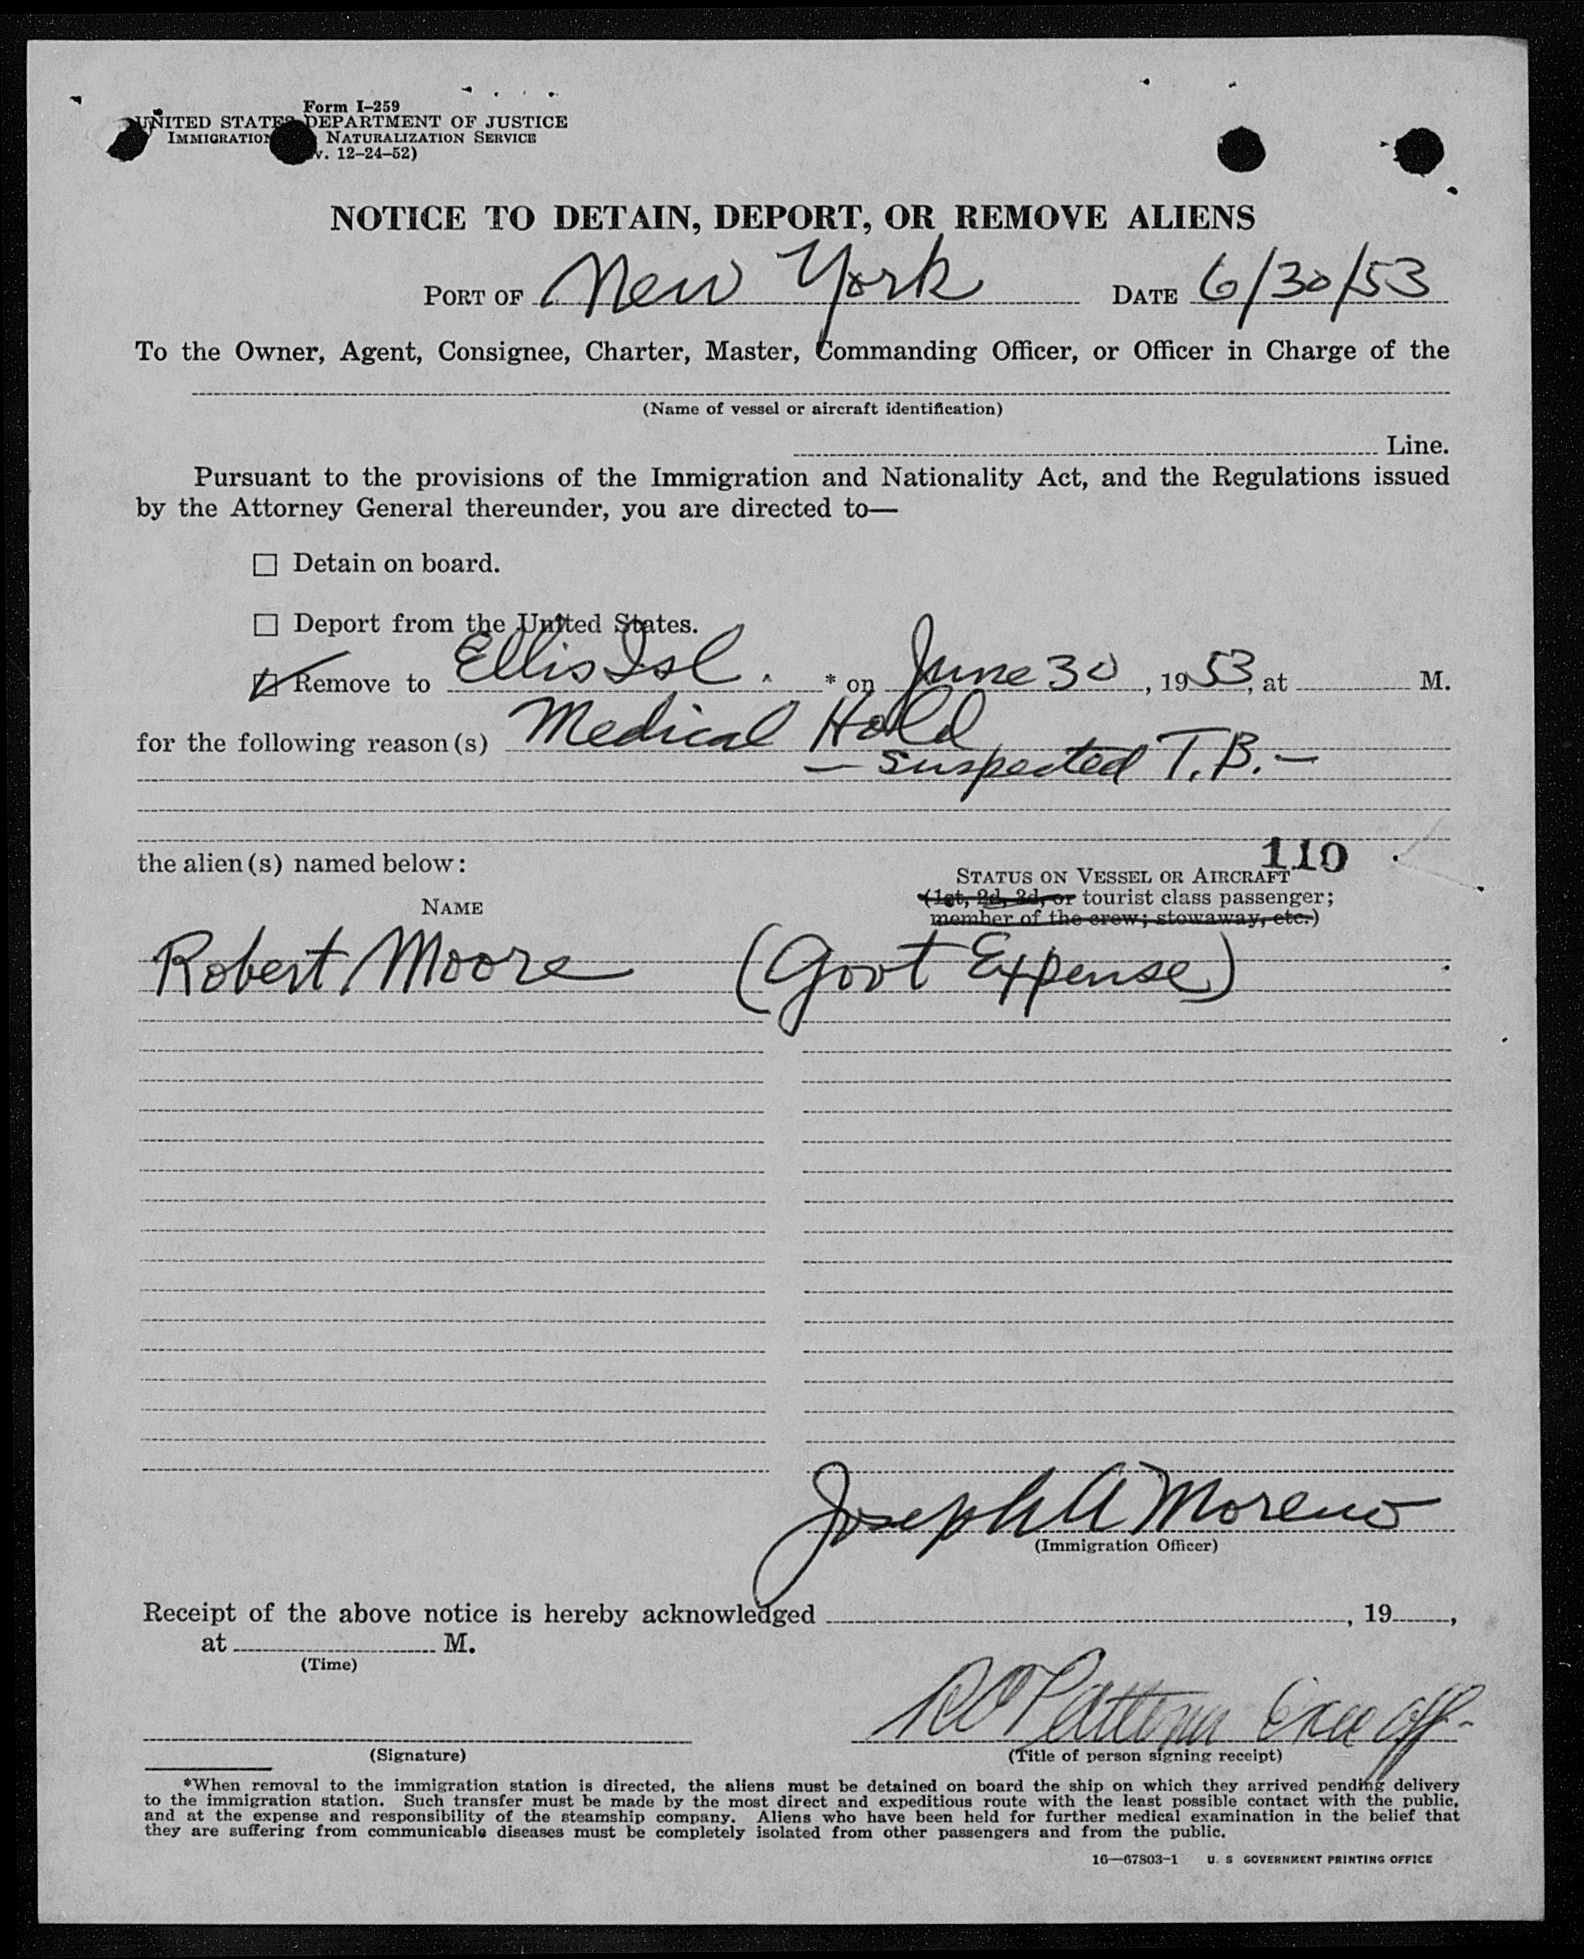 Form I-259
UNITED STATES DEPARTMENT OF JUSTICE
IMMIGRATION NATURALIZATION SERVICE
v. 12-24-52)
NOTICE TO DETAIN, DEPORT, OR REMOVE ALIENS
PORT OF New York DATE 6/30/53
To the Owner, Agent, Consignee, Charter, Master, Commanding Officer, or Officer in Charge of the
(Name of vessel or aircraft identification)
Line.
Pursuant to the provisions of the Immigration and Nationality Act, and the Regulations issued
by the Attorney General thereunder, you are directed to—
Detain on board.
Deport from the United States.
Remove to Ellis Isl. * on June 30, 1953, at M.
for the following reason(s) Medical Hold
— suspected T.B. —
110
the alien(s) named below:
STATUS ON VESSEL OR AIRCRAFT
NAME
(1st, 2d, 3d, or tourist class passenger;
member of the crew; stowaway, etc.)
Robert Moore (Govt Expense)
Joseph A Moreno
(Immigration Officer)
Receipt of the above notice is hereby acknowledged , 19 ,
at M.
(Time)
Patterson Exec Off.
(Signature) (Title of person signing receipt)
*When removal to the immigration station is directed, the aliens must be detained on board the ship on which they arrived pending delivery
to the immigration station. Such transfer must be made by the most direct and expeditious route with the least possible contact with the public,
and at the expense and responsibility of the steamship company. Aliens who have been held for further medical examination in the belief that
they are suffering from communicable diseases must be completely isolated from other passengers and from the public.
16—67803-1 U. S GOVERNMENT PRINTING OFFICE